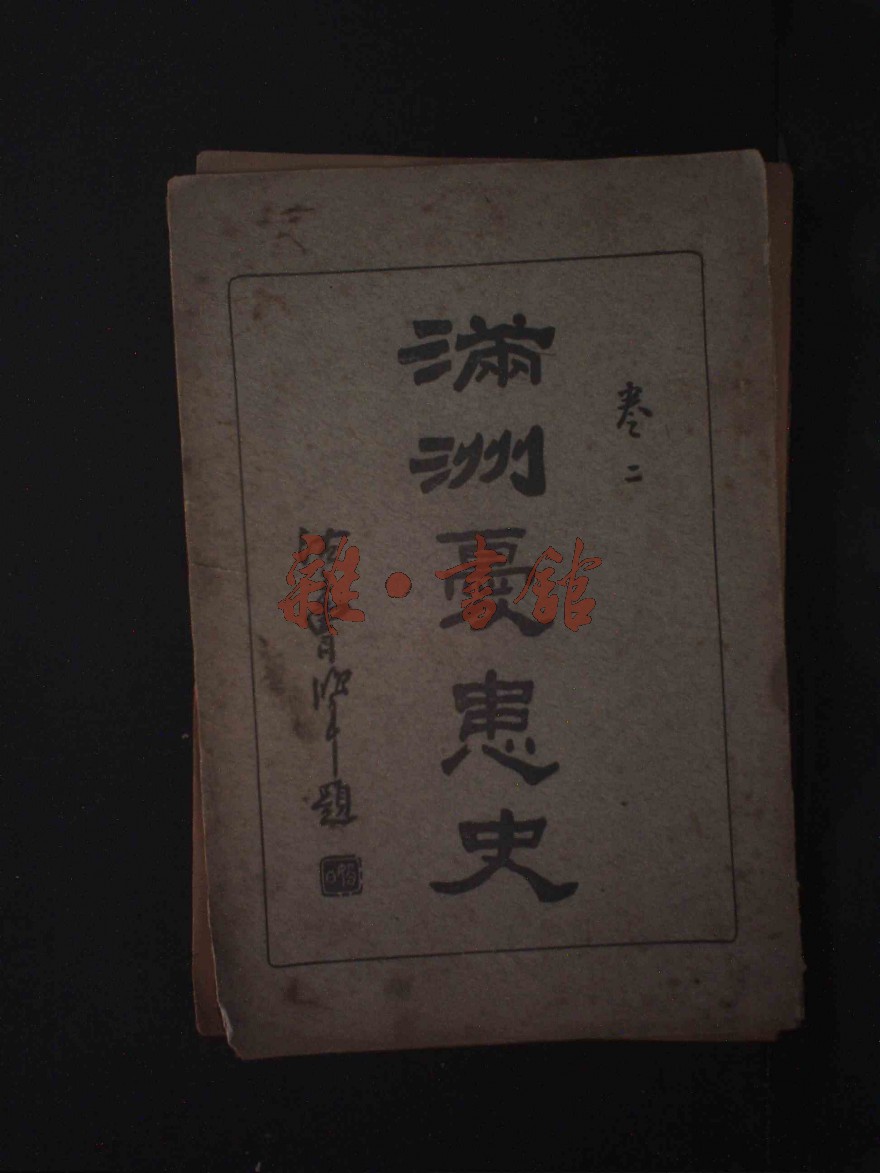 卷二
滿洲憂患史
題
雜·書館